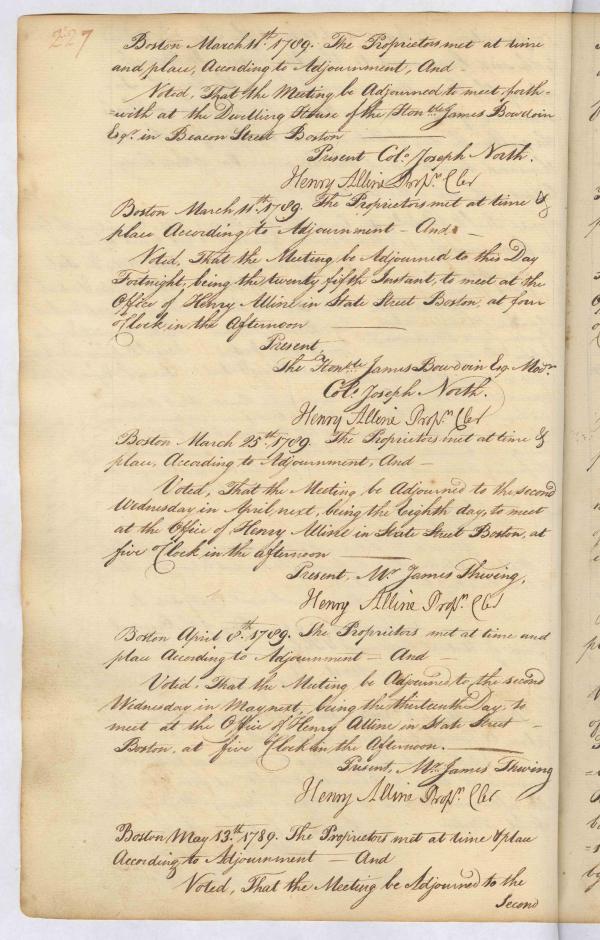 227
Boston March 11th. 1789. The Proprietors met at time
and place, According to Adjournment, And -
Voted, That the Meeting be Adjourned to meet forth=
=with at the Dwelling House of the Honble James Bowdoin
Esqr. in Beacon Street Boston
Present Colo. Joseph North.
Henry Alline Propn. Cler
Boston March 11th. 1789. The Proprietors met at time &
place According to Adjournment - And -
Voted, That the Meeting, be Adjourned to this Day
Fortnight, being the twenty fifth Instant, to meet at the
Office of Henry Alline in State Street Boston, at four
o'Clock in the Afternoon
Present,
The Honble James Bowdoin Esq. Modr.
Colo. Joseph North.
Henry Alline Propn. Cler
Boston March 25th. 1789. The Proprietors met at time &
place, According to Adjournment, And -
Voted, That the Meeting, be Adjourned to the second
Wednesday in April next, being the Eighth day, to meet
at the Office of Henry Alline in State Street Boston, at
five o'Clock in the afternoon
Present, Mr. James Thwing,
Henry Alline Propn. Cler
Boston April 8th. 1789. The Proprietors met at time and
place According to Adjournment - And -
Voted, That the Meeting be Adjourned to the second
Wednesday in May next, being the thirteenth Day, to
meet at the Office of Henry Alline in State Street -
Boston, at five Clock in the Afternoon.
Present, Mr. James Thwing
Henry Alline Propn. Cler
Boston May 13th. 1789. The Proprietors met at time & place
According to Adjournment - And
Voted, That the Meeting be Adjourned to the
Second